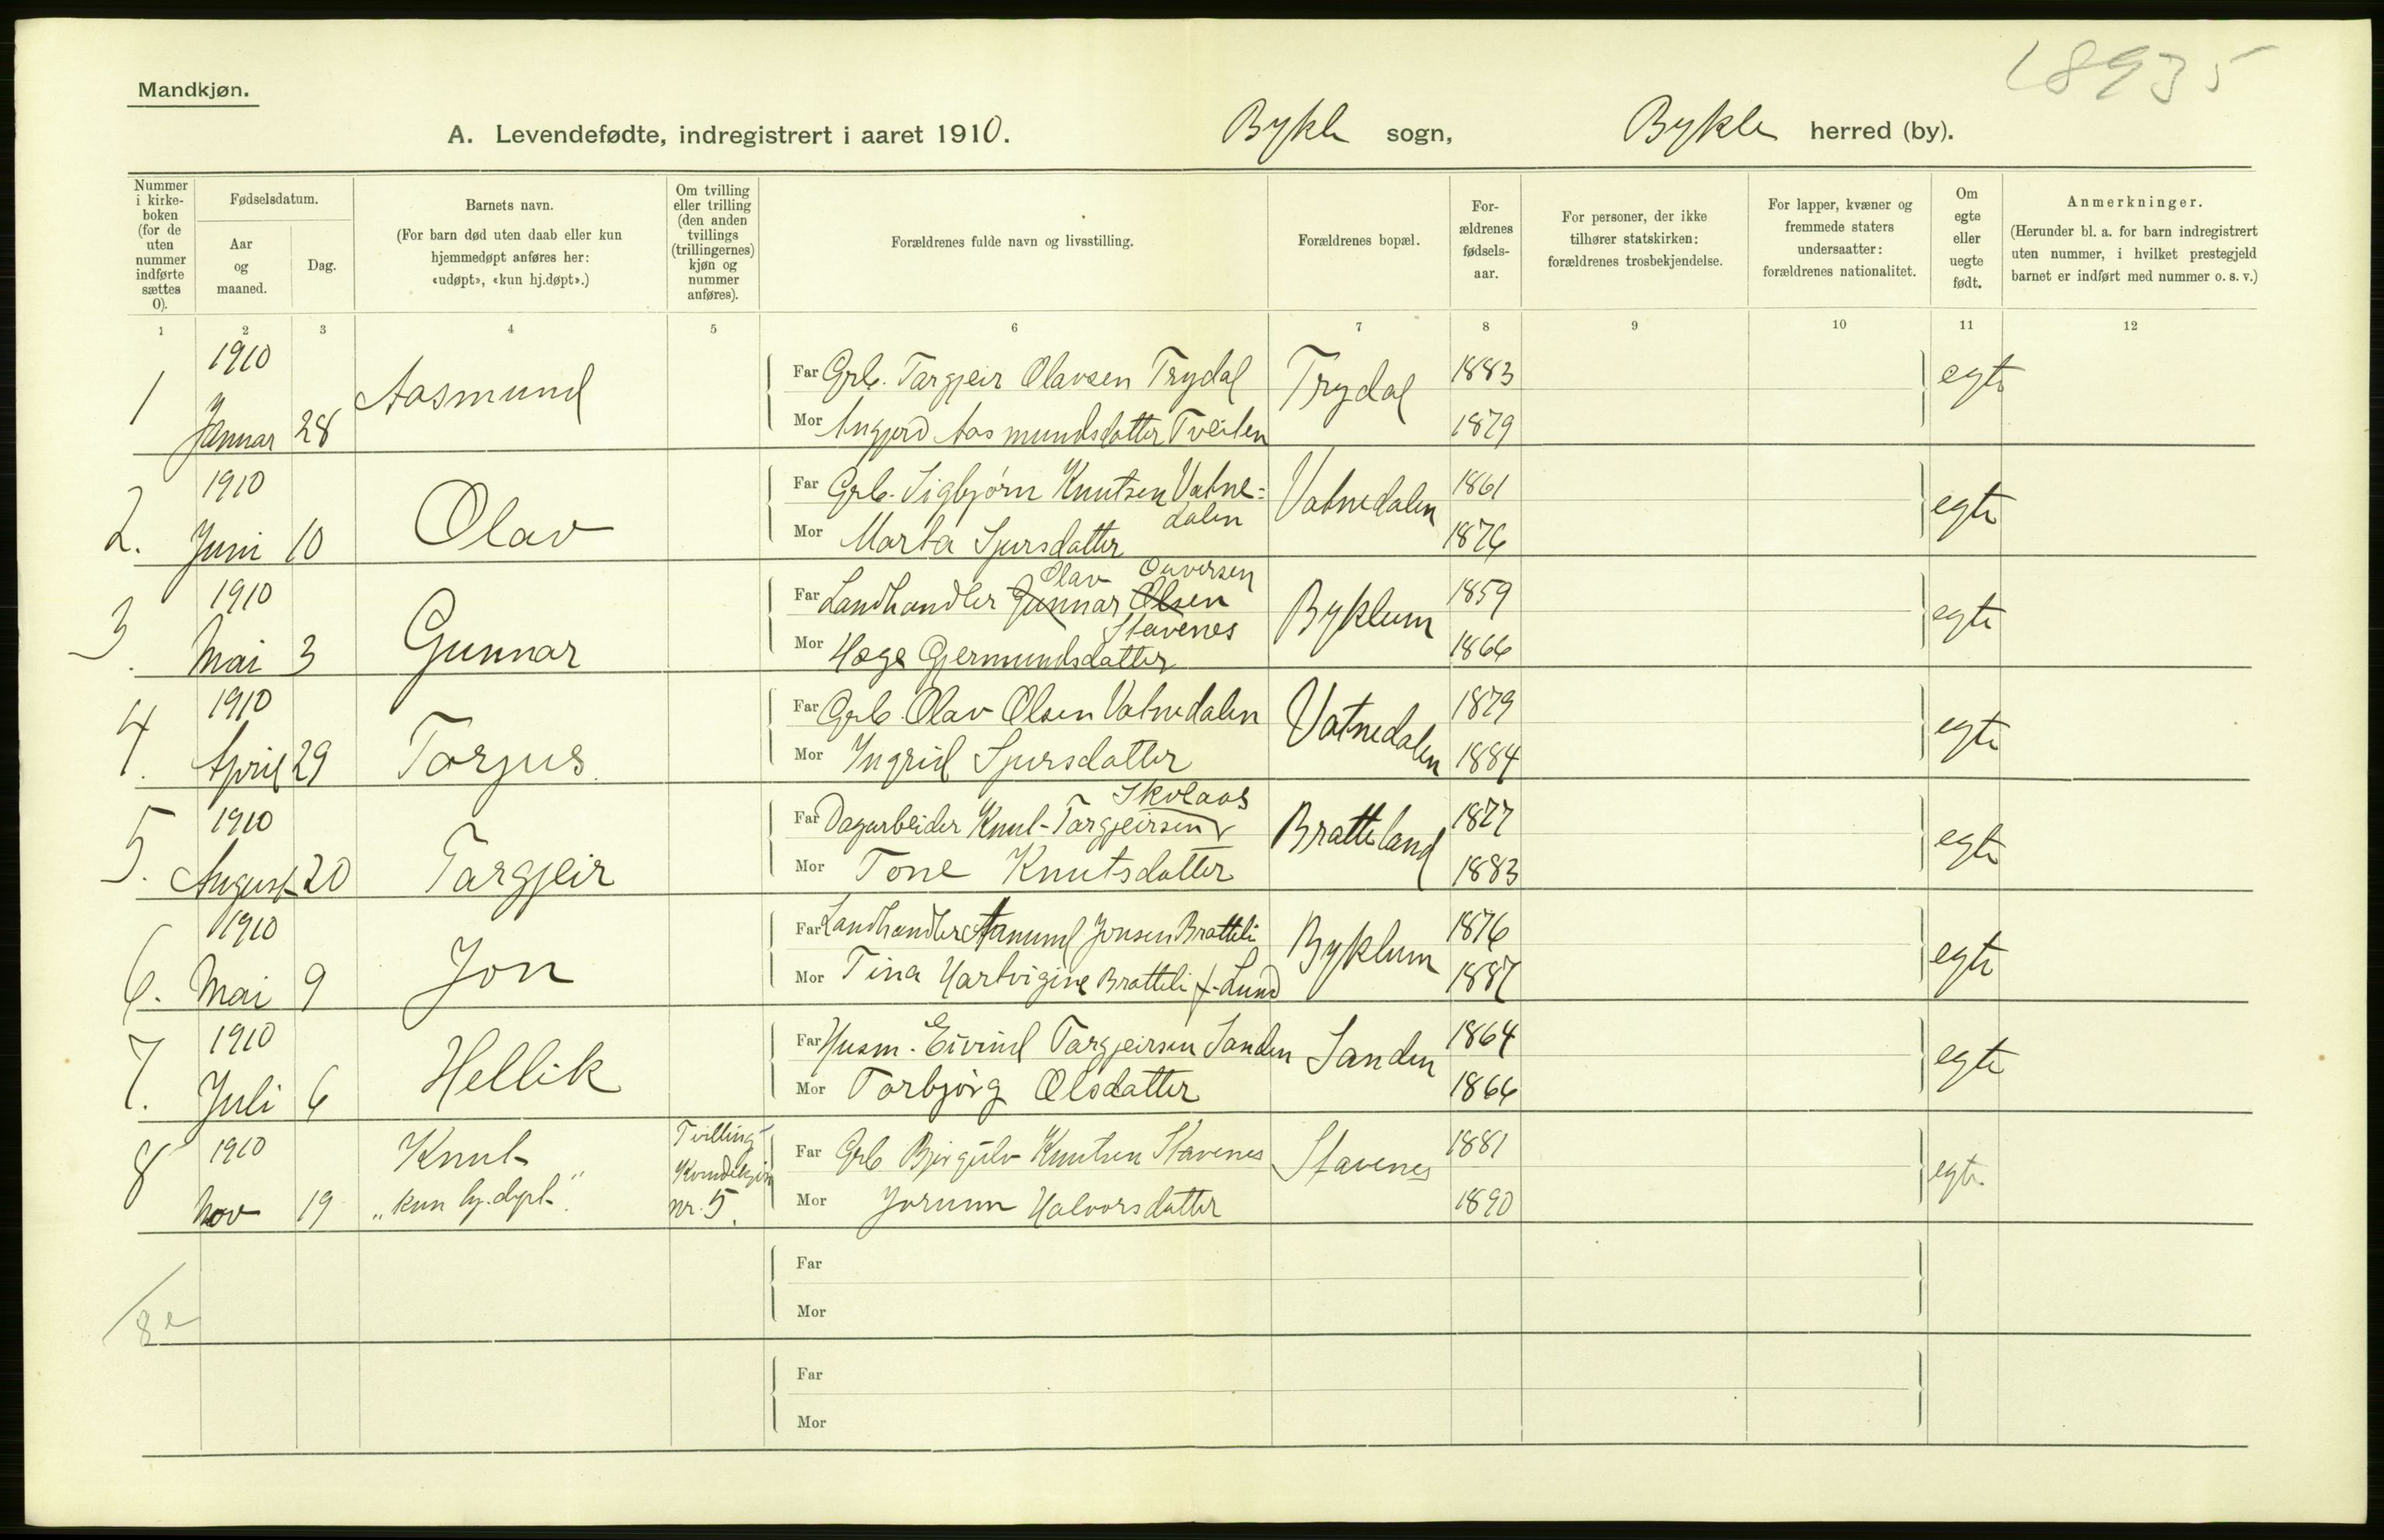 18935
Mandkjøn.
A. Levendefødte, indregistrert i aaret 1910. Bykle sogn, Bykle herred (by).
Nummer i kirke-boken (for de uten nummer indførte sættes 0).
Fødselsdatum.
Aar og maaned.
Dag.
Barnets navn.
(For barn død uten daab eller kun hjemmedøpt anføres her: «udøpt», «kun hj.døpt».)
Om tvilling eller trilling (den anden tvillings (trillingernes) kjøn og nummer anføres).
Forældrenes fulde navn og livsstilling.
Forældrenes bopæl.
For-ældrenes fødsels-aar.
For personer, der ikke tilhører statskirken: forældrenes trosbekjendelse.
For lapper, kvæner og fremmede staters undersaatter: forældrenes nationalitet.
Om egte eller uegte født.
Anmerkninger.
(Herunder bl. a. for barn indregistrert uten nummer, i hvilket prestegjeld barnet er indført med nummer o. s. v.)
1 2 3 4 5 6 7 8 9 10 11 12
1 1910 Januar 28 Aasmund
Far Grb. Targjeir Olavsen Trydal Trydal 1883 egte
Mor Angjerd Aasmundsdatter Tveiten 1879
2. 1910 Juni 10 Olav
Far Grb. Sigbjørn Knutsen Vatne=dalen Vatnedalen 1861 egte
Mor Marta Sjursdatter 1876
3. 1910 Mai 3 Gunnar
Olav Ouversen
Far Landhandler Gunnar Olsen Byklum 1859 egte
Stavenes
Mor Hæge Gjermundsdatter 1866
4. 1910 April 29 Torjus
Far Grb. Olav Olsen Vatnedalen Vatnedalen 1879 egte
Mor Ingrid Sjursdatter 1884
5. 1910 August 20 Targjeir
Skolaas
Far Dagarbeider Knut Targjeirsen Bratteland 1877 egte
Mor Tone Knutsdatter 1883
6. 1910 Mai 9 Jon
Far Landhandler Aamund Jonsen Bratteli Byklum 1876 egte
Mor Tina Hartvigine Bratteli f. Lund 1887
7. 1910 Juli 6 Hellik
Far Husm. Eivind Targjeirsen Sanden Sanden 1864 egte
Mor Torbjørg Olsdatter 1866
8 1910 Nov 19 Knut
„kun hj.døpt“.
Tvilling
Kvindekjøn
nr. 5.
Far Grb Bjørgulv Knutsen Stavenes Stavenes 1881 egte
Mor Jorunn Halvorsdatter 1890
Far
Mor
8 e
Far
Mor